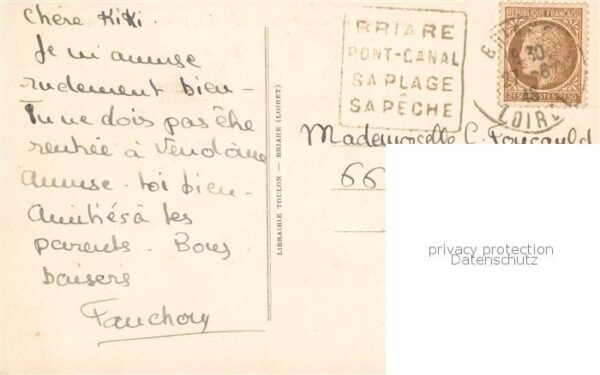 Chère Kiki.
Je m'amuse
rudement bien -
Tu ne dois pas être
rentrée à Vendôme
Amuse-toi bien -
Amitiés à tes
parents. Bons
baisers
Fanchon
LIBRAIRIE TOULON - BRIARE (LOIRET)
BRIARE
PONT-CANAL
SA PLAGE
SA PÊCHE
REPUBLIQUE FRANÇAISE
POSTES
LOIRET
Mademoiselle C. Foucauld
66
privacy protection
Datenschutz